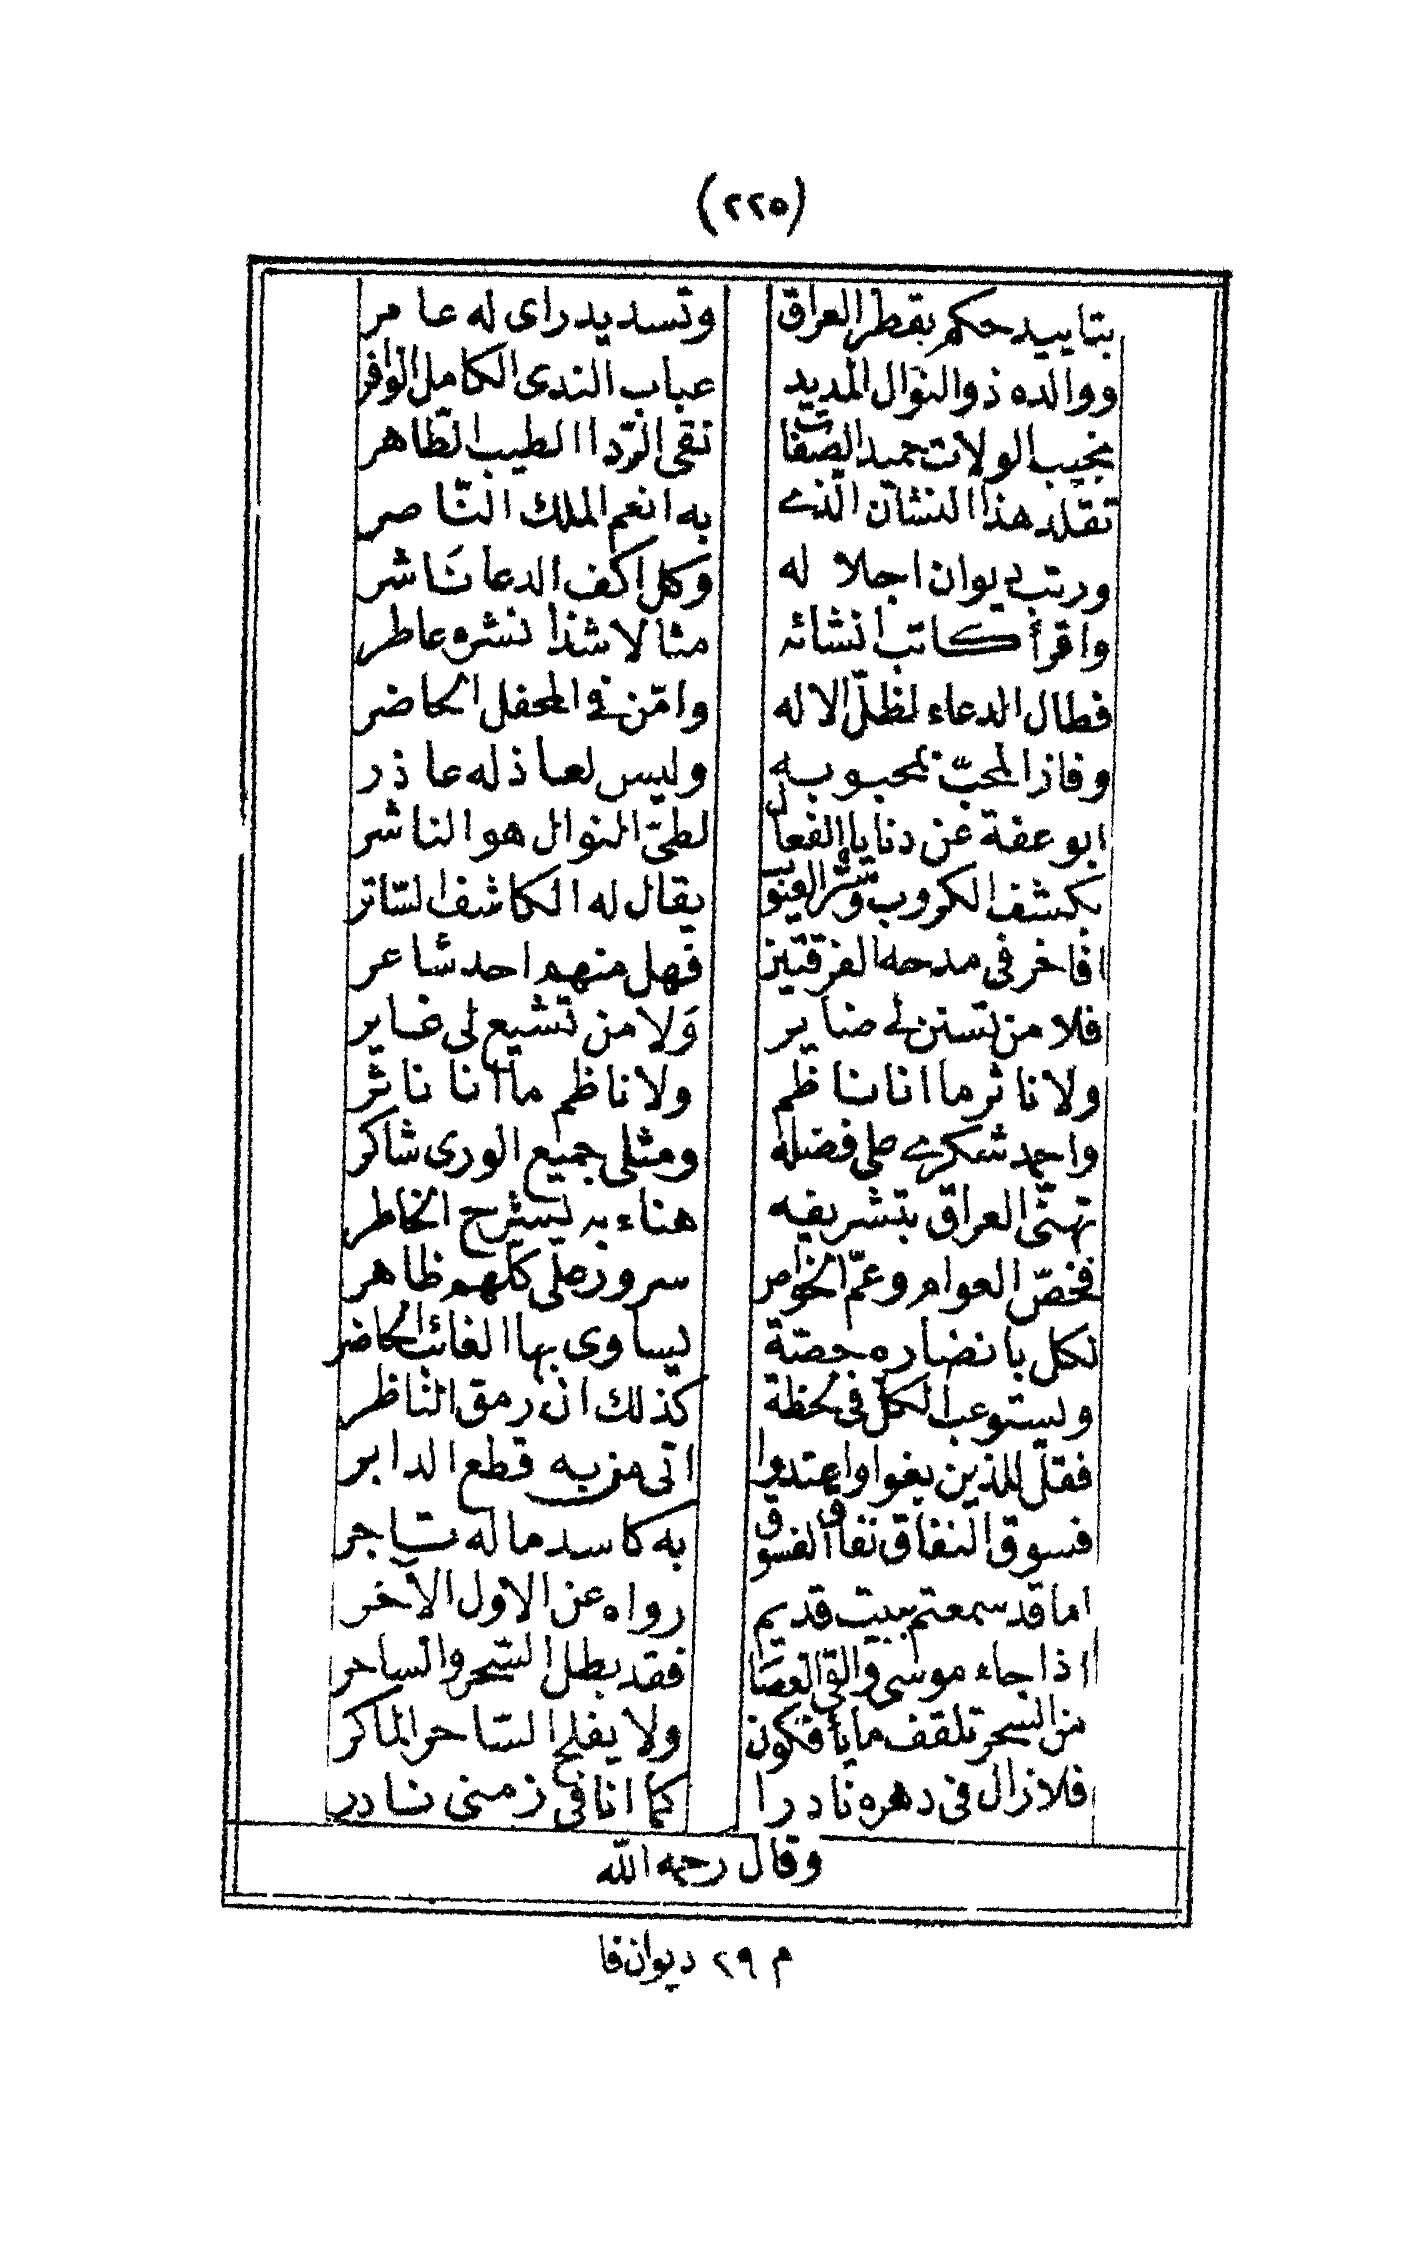 (٢٢٥)
بتاييد حكم بقطر العراق وتسديد راى له عامر
ووالده ذو النوال المديد عباب الندى الكامل الوافر
نجيب الولات حميد الصفات نقى الردا الطيب الطاهر
تقلد هذا النشان الذى به انعم الملك النّاصر
ورتب ديوان اجلا له وكل اكف الدعا نَاشر
واقرأ كاتب انشائه مثالا شذا نشره عاطر
فطال الدعاء لظلّ الاله وامّن فى المحفل الحاضر
وفاز المحبّ بمحبوبه وليس لعاذله عاذر
ابو عفة عن دنايا الفعال لطىّ النوائل هو الناشر
بكشف الكروب وستر العيوب يقال له الكاشف السّاتر
افاخر فى مدحه الفرقتين فهل منهم احد شاعر
فلا من تسنن لى ضاير وَلا من تشيع لى ضاير
ولا ناثر ما انا ناظم ولا ناظم ما انا ناثر
واحمد شكرى على فضله ومثلى جميع الورى شاكر
تهنّى العراق بتشريفه هناء به ليسترح الخاطر
فخصّ العوام وعمّ الخواص سرور على كلهم ظاهر
لكل بانضاره حصّة يساوى بها الغائب الحاضر
ويستوعب الكل فى لحظة كذلك ان رمق النّاظر
فقل للذين بغوا واعتدوا اتى من به قطع الدابر
فسوق النفاق نفاق الفسوق به كاسد ماله تاجر
اما قد سمعتم ببيت قديم رواه عن الاول الآخر
اذا جاء موسى والقى العصَا فقد بطل السّحر والساحر
من السحر تلقف ما يأفكون ولا يفلح السّاحر الماكر
فلا زال فى دهره نادرا كما انا فى زمنى نادر
وقال رحمه اللّه
م ٢٩ ديوان فا